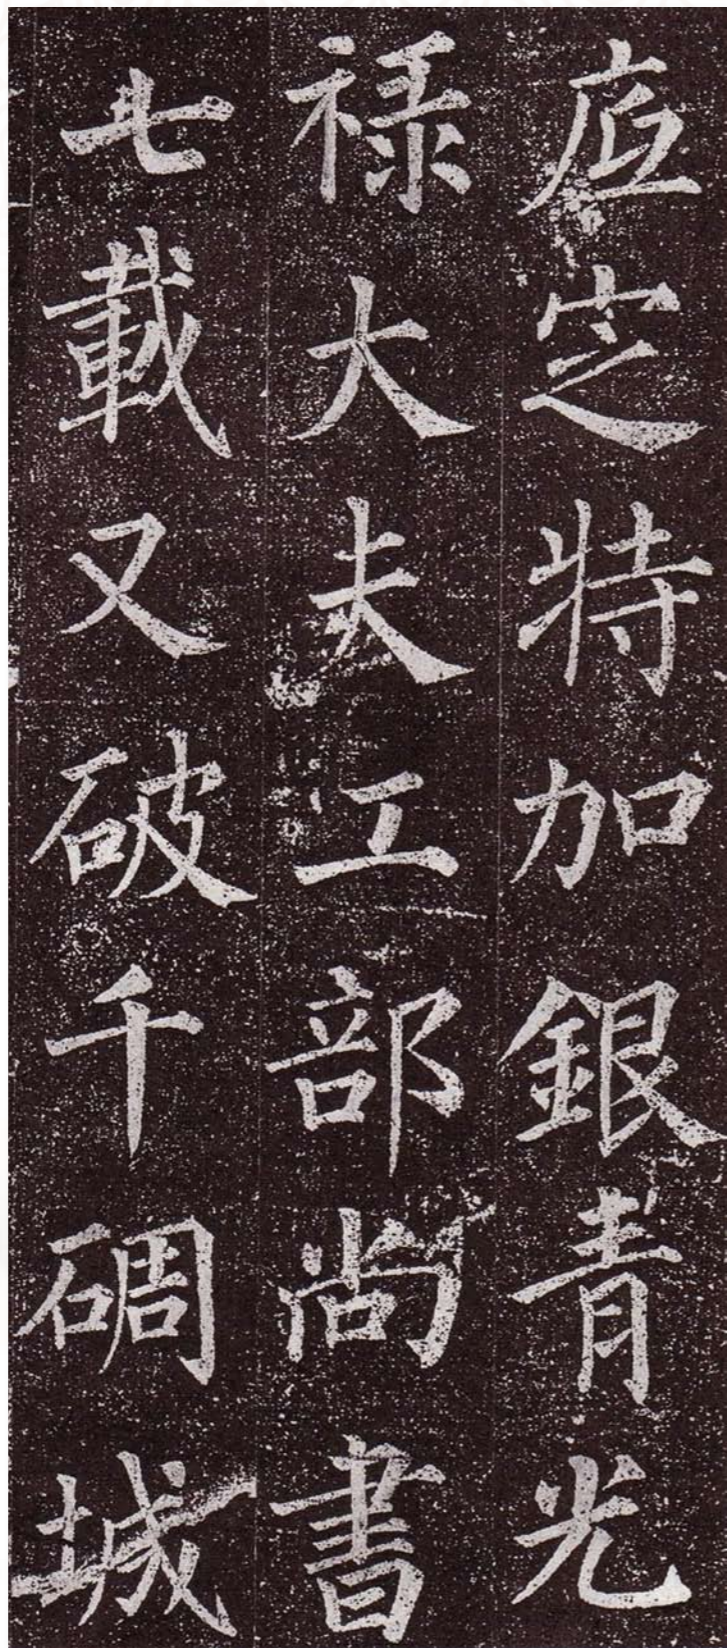 底定特加銀青光
祿大夫工部尚書
七載又破千碉城